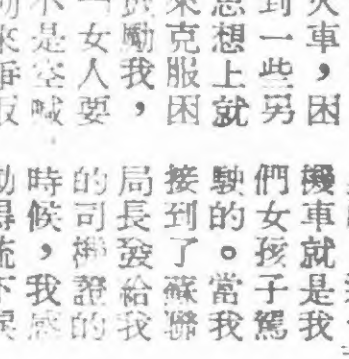 火車，困
到一些另
想上就
來克服困
勵我，
女人要
不是空喊
來爭
機車就是我
們女孩子駕
駛的。當我
接到了蘇聯
局長發給我
的司機證的
時候，我感
動得流下淚